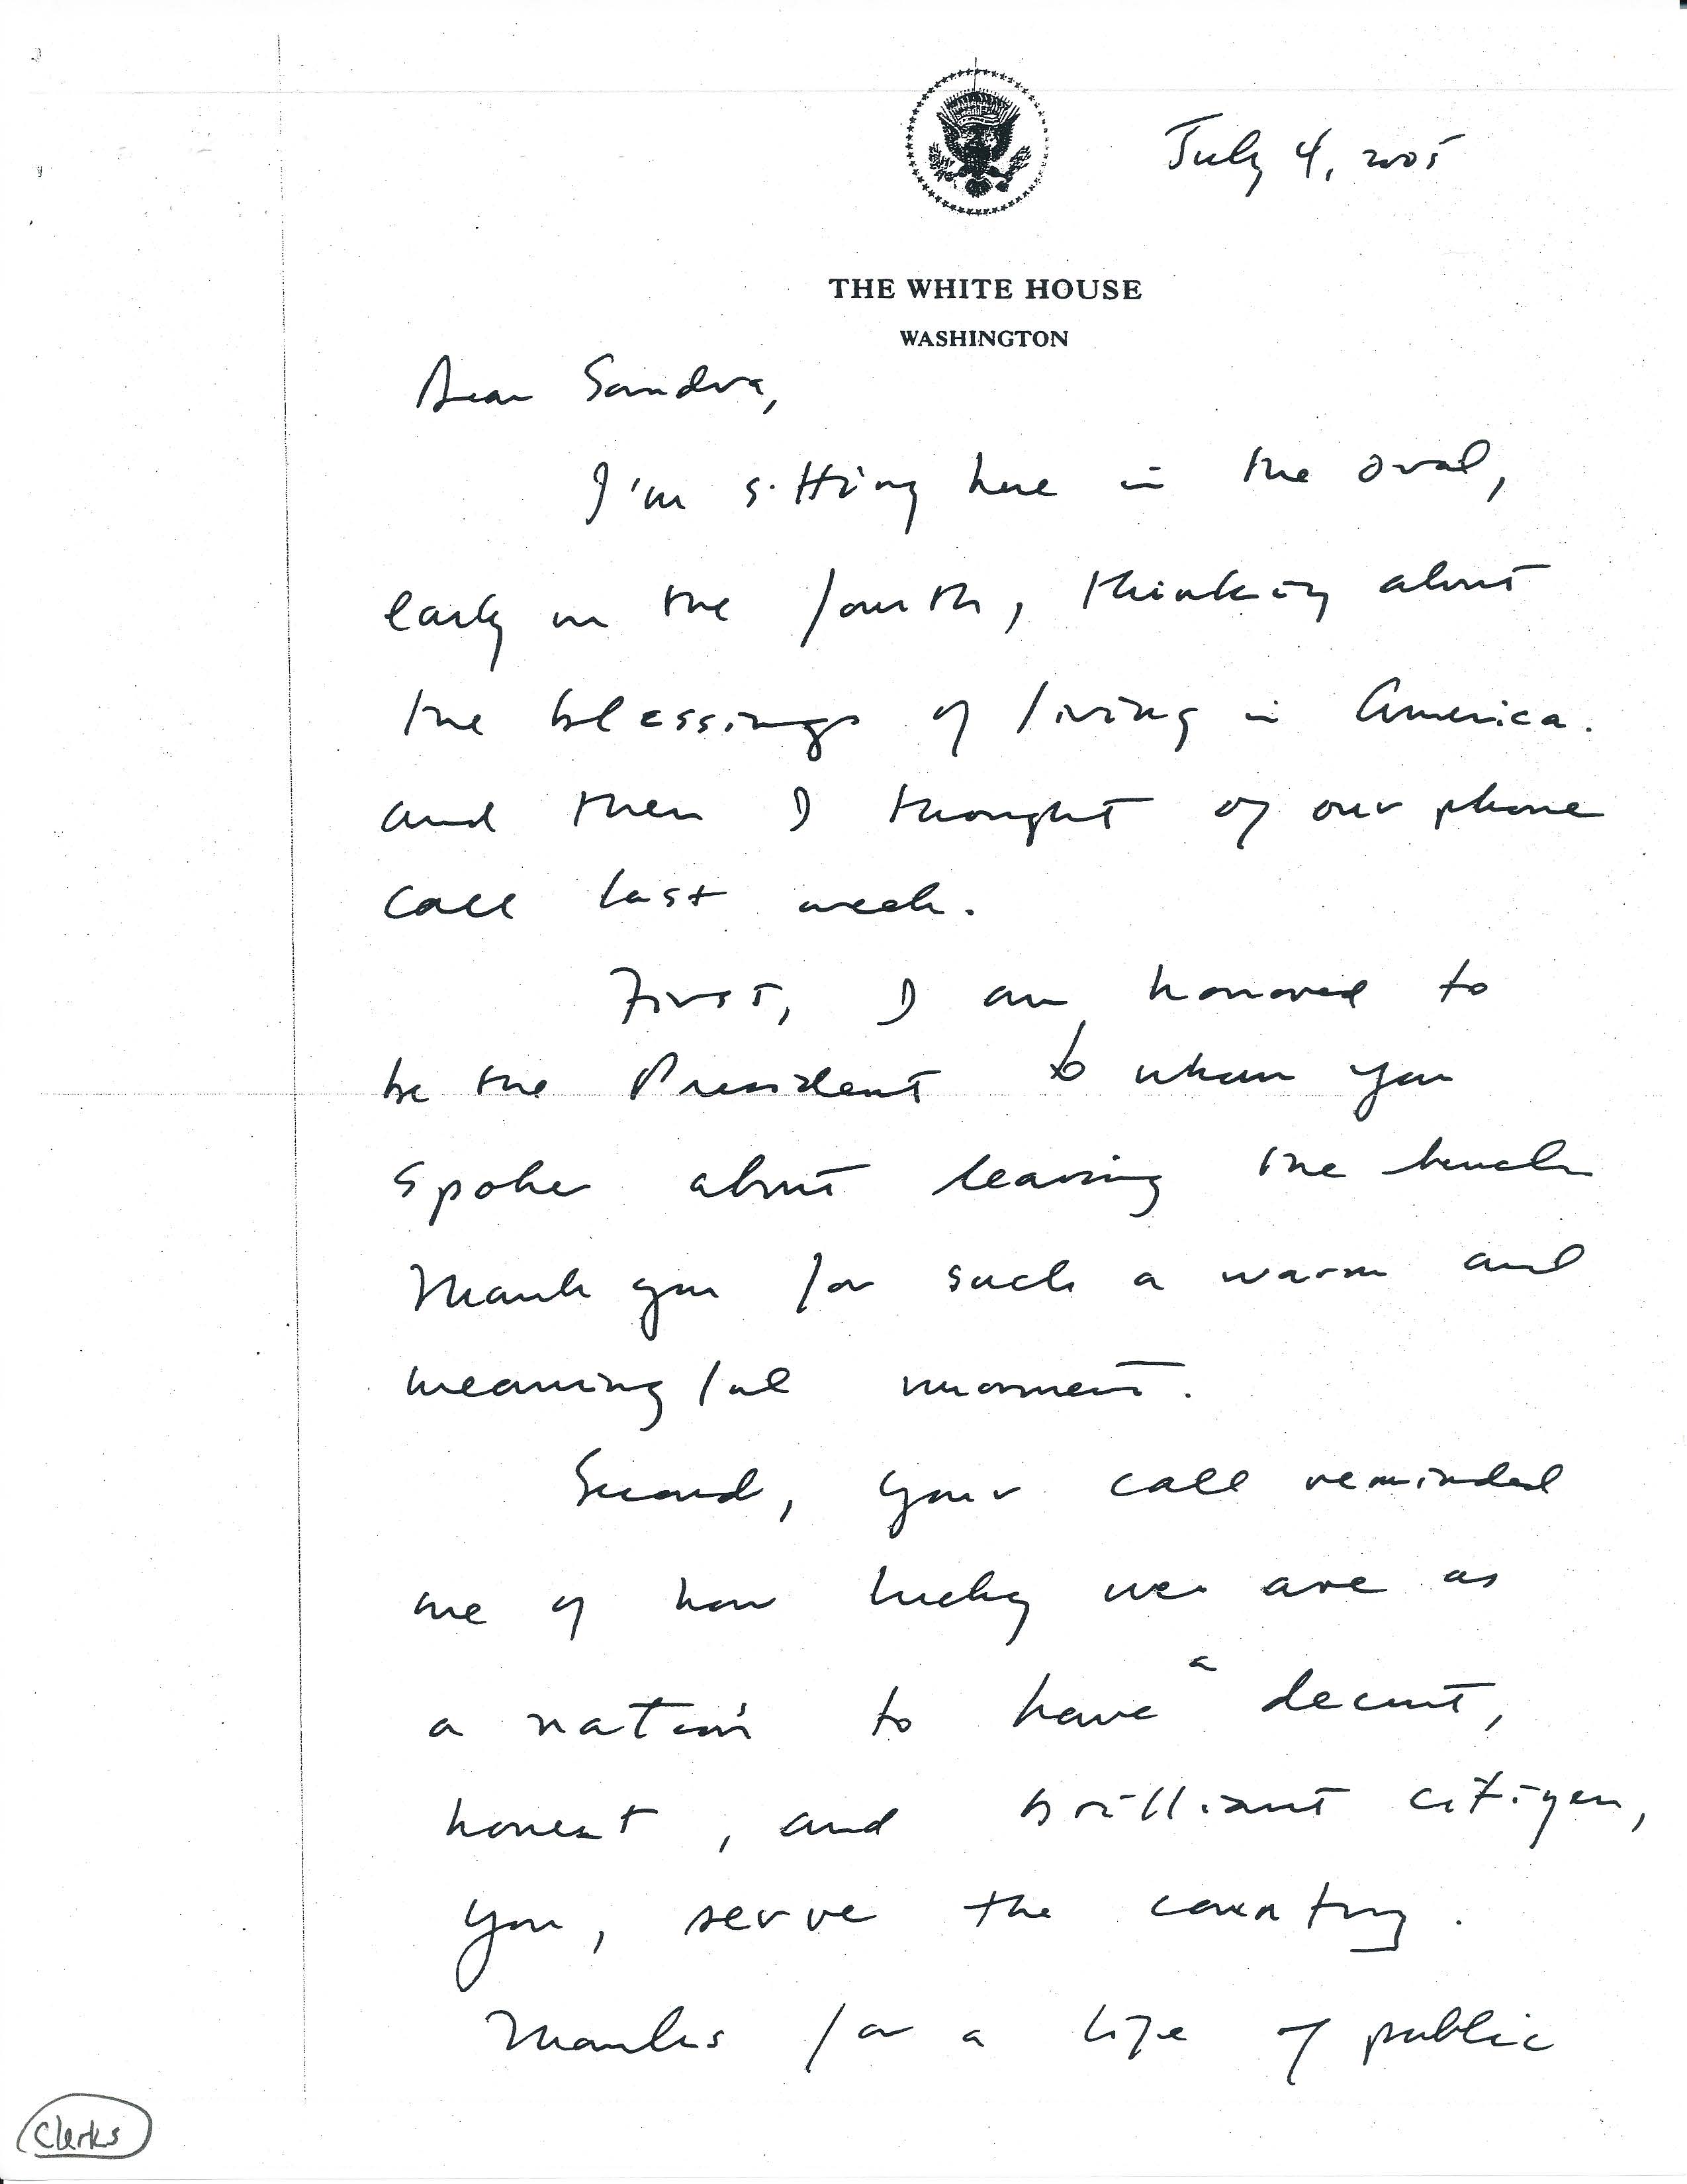 July 4, 2005
THE WHITE HOUSE
WASHINGTON
Dear Sandra,
I'm sitting here in the oval,
early on the fourth, thinking about
the blessings of living in America.
And then I thought of our phone
call last week.
First, I am honored to
be the President to whom you
spoke about leaving the bench
Thank you for such a warm and
meaningful moment.
Second, your call reminded
me of how lucky we are as
a nation to have a decent,
honest, and brilliant citizen,
you, serve the country.
Thanks for a life of public
Clerks